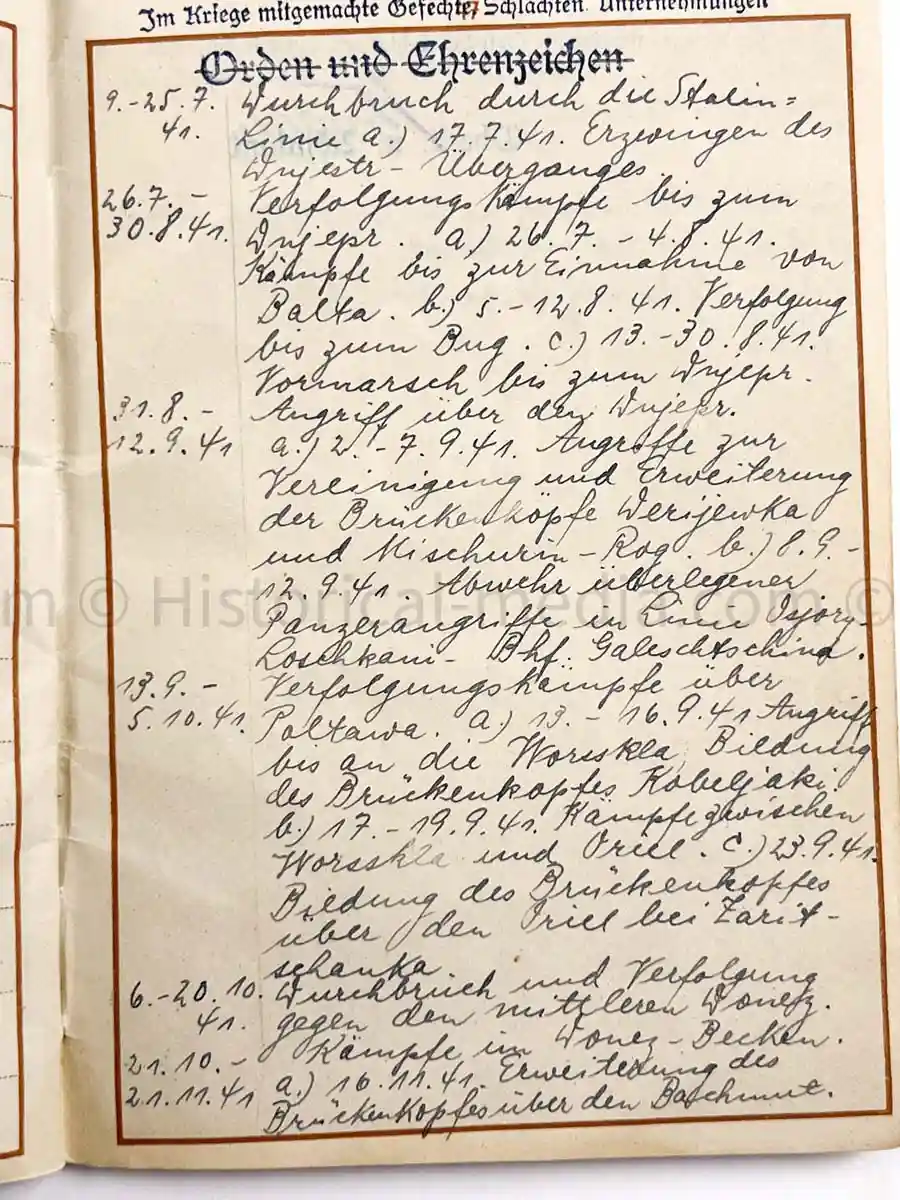 Im Kriege mitgemachte Gefechte, Schlachten, Unternehmungen
Orden und Ehrenzeichen
9.-25.7. Durchbruch durch die Stalin=
41. Linie a.) 17.7.41. Erzwingen des
Dnjestr- Überganges.
26.7. - Verfolgungskämpfe bis zum
30.8.41. Dnjepr. a.) 26.7. - 4.8.41.
Kämpfe bis zur Einnahme von
Balta. b.) 5.-12.8.41. Verfolgung
bis zum Bug. c.) 13.-30.8.41.
Vormarsch bis zum Dnjepr.
31.8. - Angriff über den Dnjepr.
12.9.41 a.) 2.-7.9.41. Angriffe zur
Vereinigung und Erweiterung
der Brückenköpfe Derijewka
und Mischurin-Rog. b.) 8.9. -
12.9.41. Abwehr überlegener
Panzerangriffe in Linie Osjory-
Loschkani- Bhf. Galeschtschina.
13.9. - Verfolgungskämpfe über
5.10.41. Poltawa. a.) 13.-16.9.41 Angriff
bis an die Worsskla, Bildung
des Brückenkopfes Kobeljaki.
b.) 17.-19.9.41. Kämpfe zwischen
Worsskla und Oriel. c.) 23.9.41.
Bildung des Brückenkopfes
über den Oriel bei Zarit-
schanka.
6.-20.10. Durchbruch und Verfolgung
41. gegen den mittleren Donez.
21.10. - Kämpfe im Donez-Becken.
21.11.41 a.) 16.11.41. Erweiterung des
Brückenkopfes über den Bachmut.
m © Historical-media.com ©